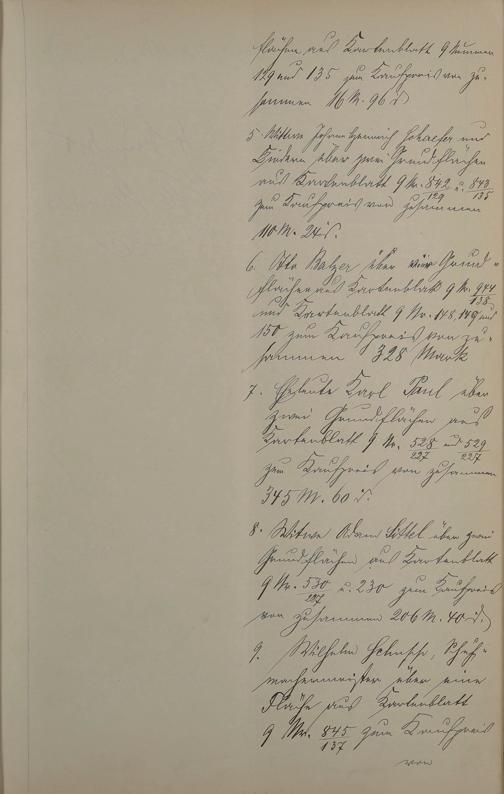 flächen aus Kartenblatt 9 Nummer
129 und 135 zum Kaufpreis von zu-
sammen 116 M. 96 d.
5. Wittwe Johann Heinrich Schaefer und
Kindern über zwei Grundflächen
aus Kartenblatt 9 Nr. 842/129 u. 843/135
zum Kaufpreis von zusammen
110 M. 24 d.
6. Otto Balzer über vier Grund-
flächen aus Kartenblatt 9 Nr. 944/138
und Kartenblatt 9 Nr. 148, 149 und
150 zum Kaufpreis von zu-
sammen 328 Mark
7. Eheleute Karl Paul über
zwei Grundflächen aus
Kartenblatt 9 Nr. 528/227 und 529/227
zum Kaufpreis von zusammen
345 M. 60 d.
8. Witwe Adam Sittel über zwei
Grundflächen aus Kartenblatt
9 Nr. 530/227 u. 230 zum Kaufpreis
von zusammen 206 M. 40 d.
9. Wilhelm Schuh-
machermeister über eine
Fläche aus Kartenblatt
9 Nr. 845/137 zum Kaufpreis
von